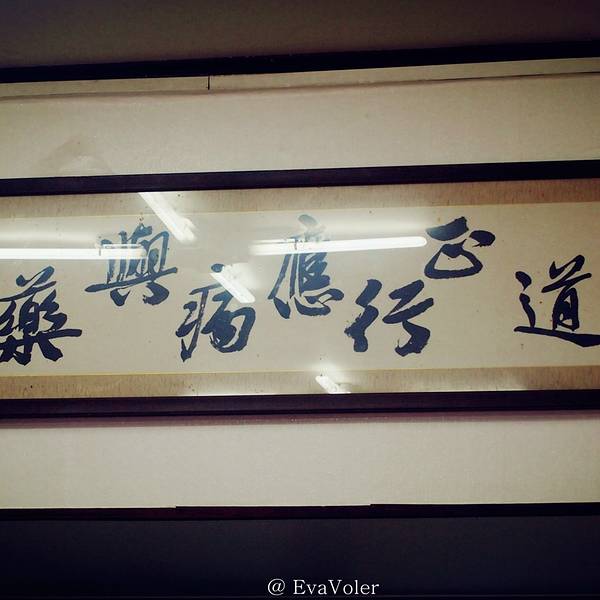 道正行應病與藥
@ EvaVoler